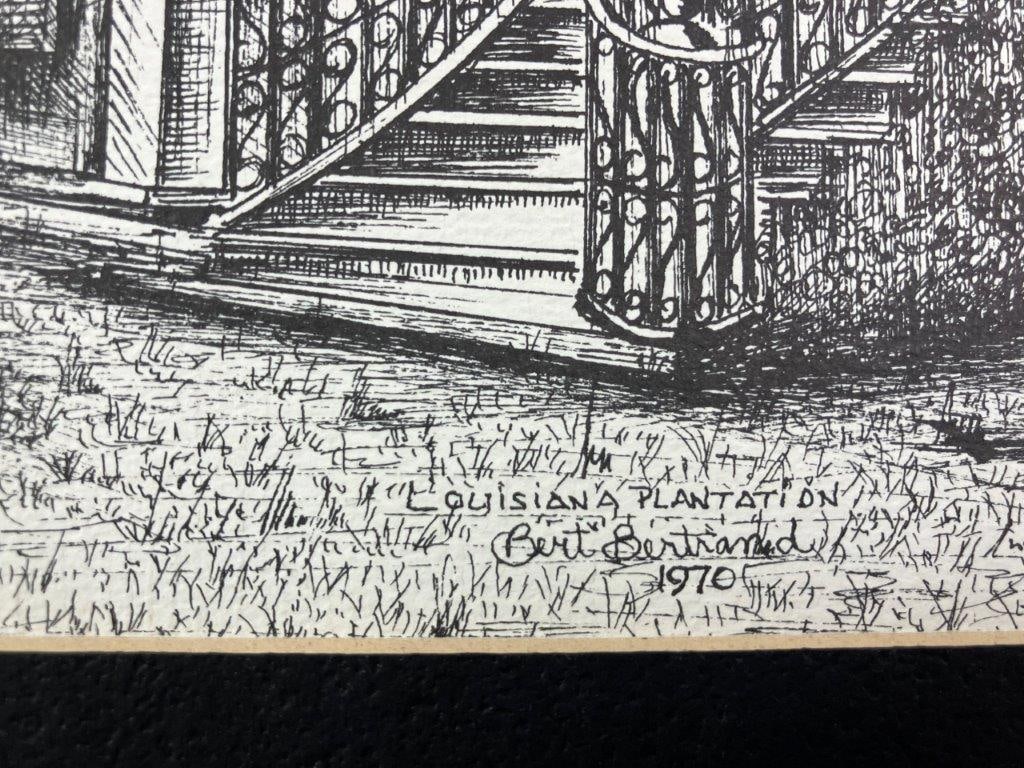 LOUISIANA PLANTATION
Bert Bertrand
1970